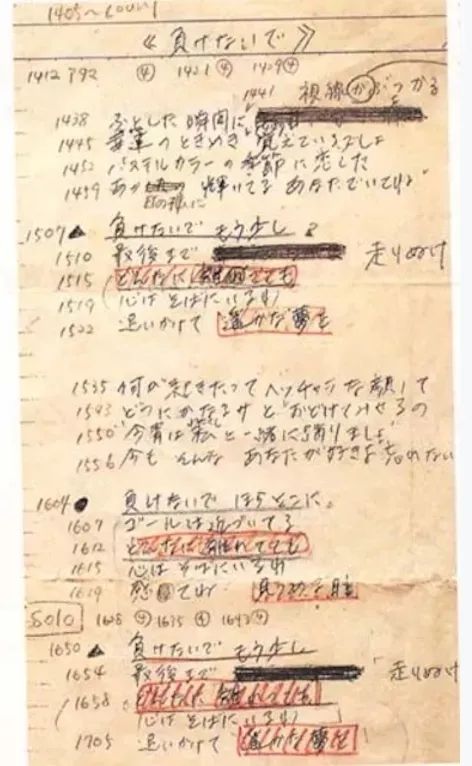 1405~ count
《負けないで》
1412 P92 ④ 1421 ④ 1429 ④
1441 視線がぶつかる
1438 ふとした瞬間に
1445 幸運のときめき 覚えているでしょ
1452 パステルカラーの季節に恋した
1459 あの 輝いてる あなたでいてね
日の様に
1507 ▲ 負けないで もう少し
1510 最後まで 走りぬけ
1515 どんなに 離れてても
1519 (心は そばにいるわ)
1522 追いかけて 遥かな夢を
1535 何が起きたって ヘッチャラな顔して
1543 どうにかなるサと おどけてみせるの
1550 "今宵は私と一緒に踊りましょ"
1556 今も そんな あなたが好きよ 忘れない
1604 ● 負けないで ほらそこに。
1607 ゴールは近づいてる
1612 どんなに 離れてても
1615 心は そばにいるわ
1619 感 てね 見つめる瞳
Solo 1628 ④ 1635 ④ 1642 ④
1650 ▲ 負けないで もう少し
1654 最後まで 走りぬけ
1658 どんなに 離れてても
(心は そばにいるわ)
1705 追いかけて 遥かな夢を